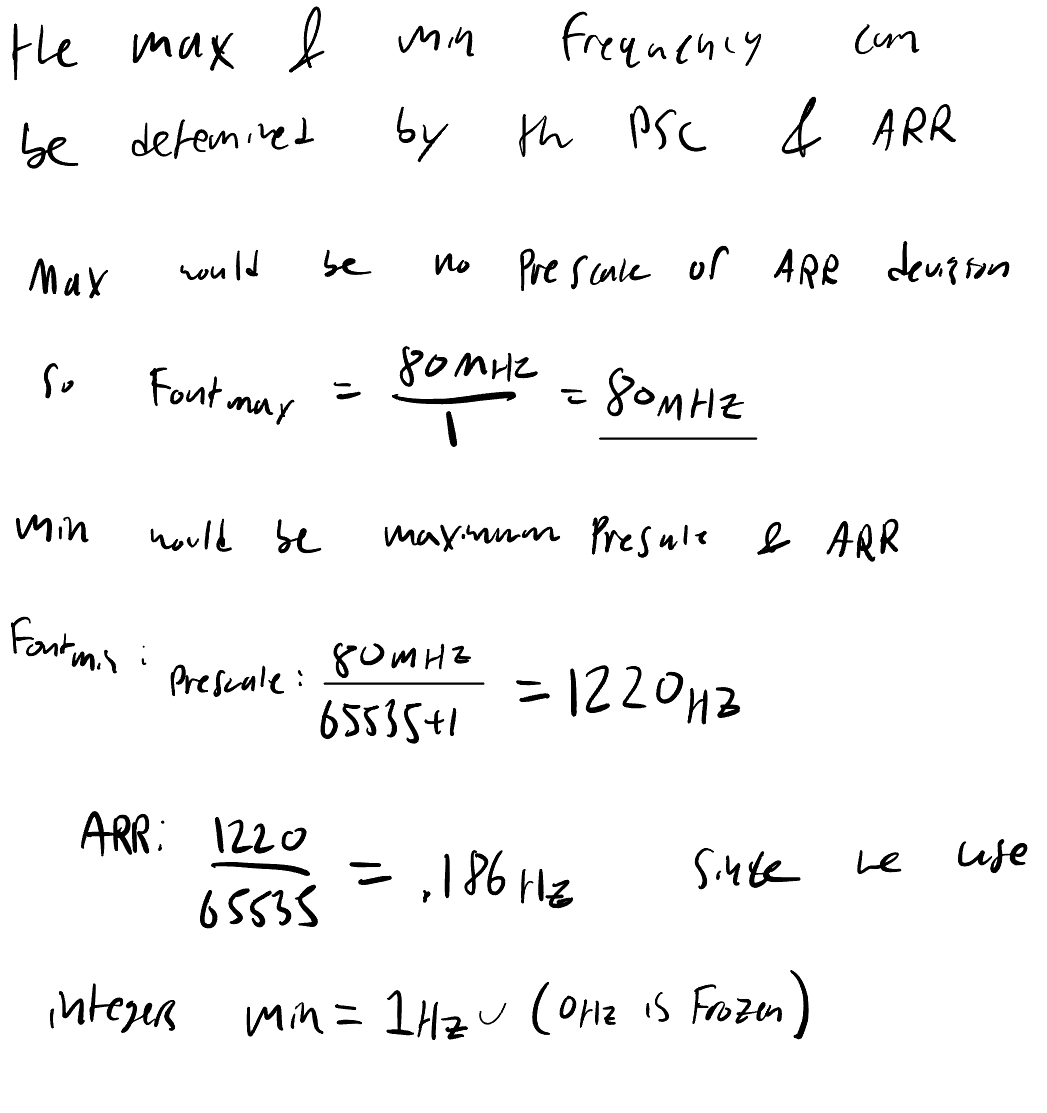 the max & min frequency can
be detemined by th PSC & ARR
Max would be no Prescale or ARR devision
So Fout max = 80MHZ / 1 = 80MHZ
Min would be maximum Prescale & ARR
Fout min : Prescale : 80MHZ / 65535+1 = 1220HZ
ARR: 1220 / 65535 = .186 Hz Since we use
integers min = 1Hz (0Hz is Frozen)